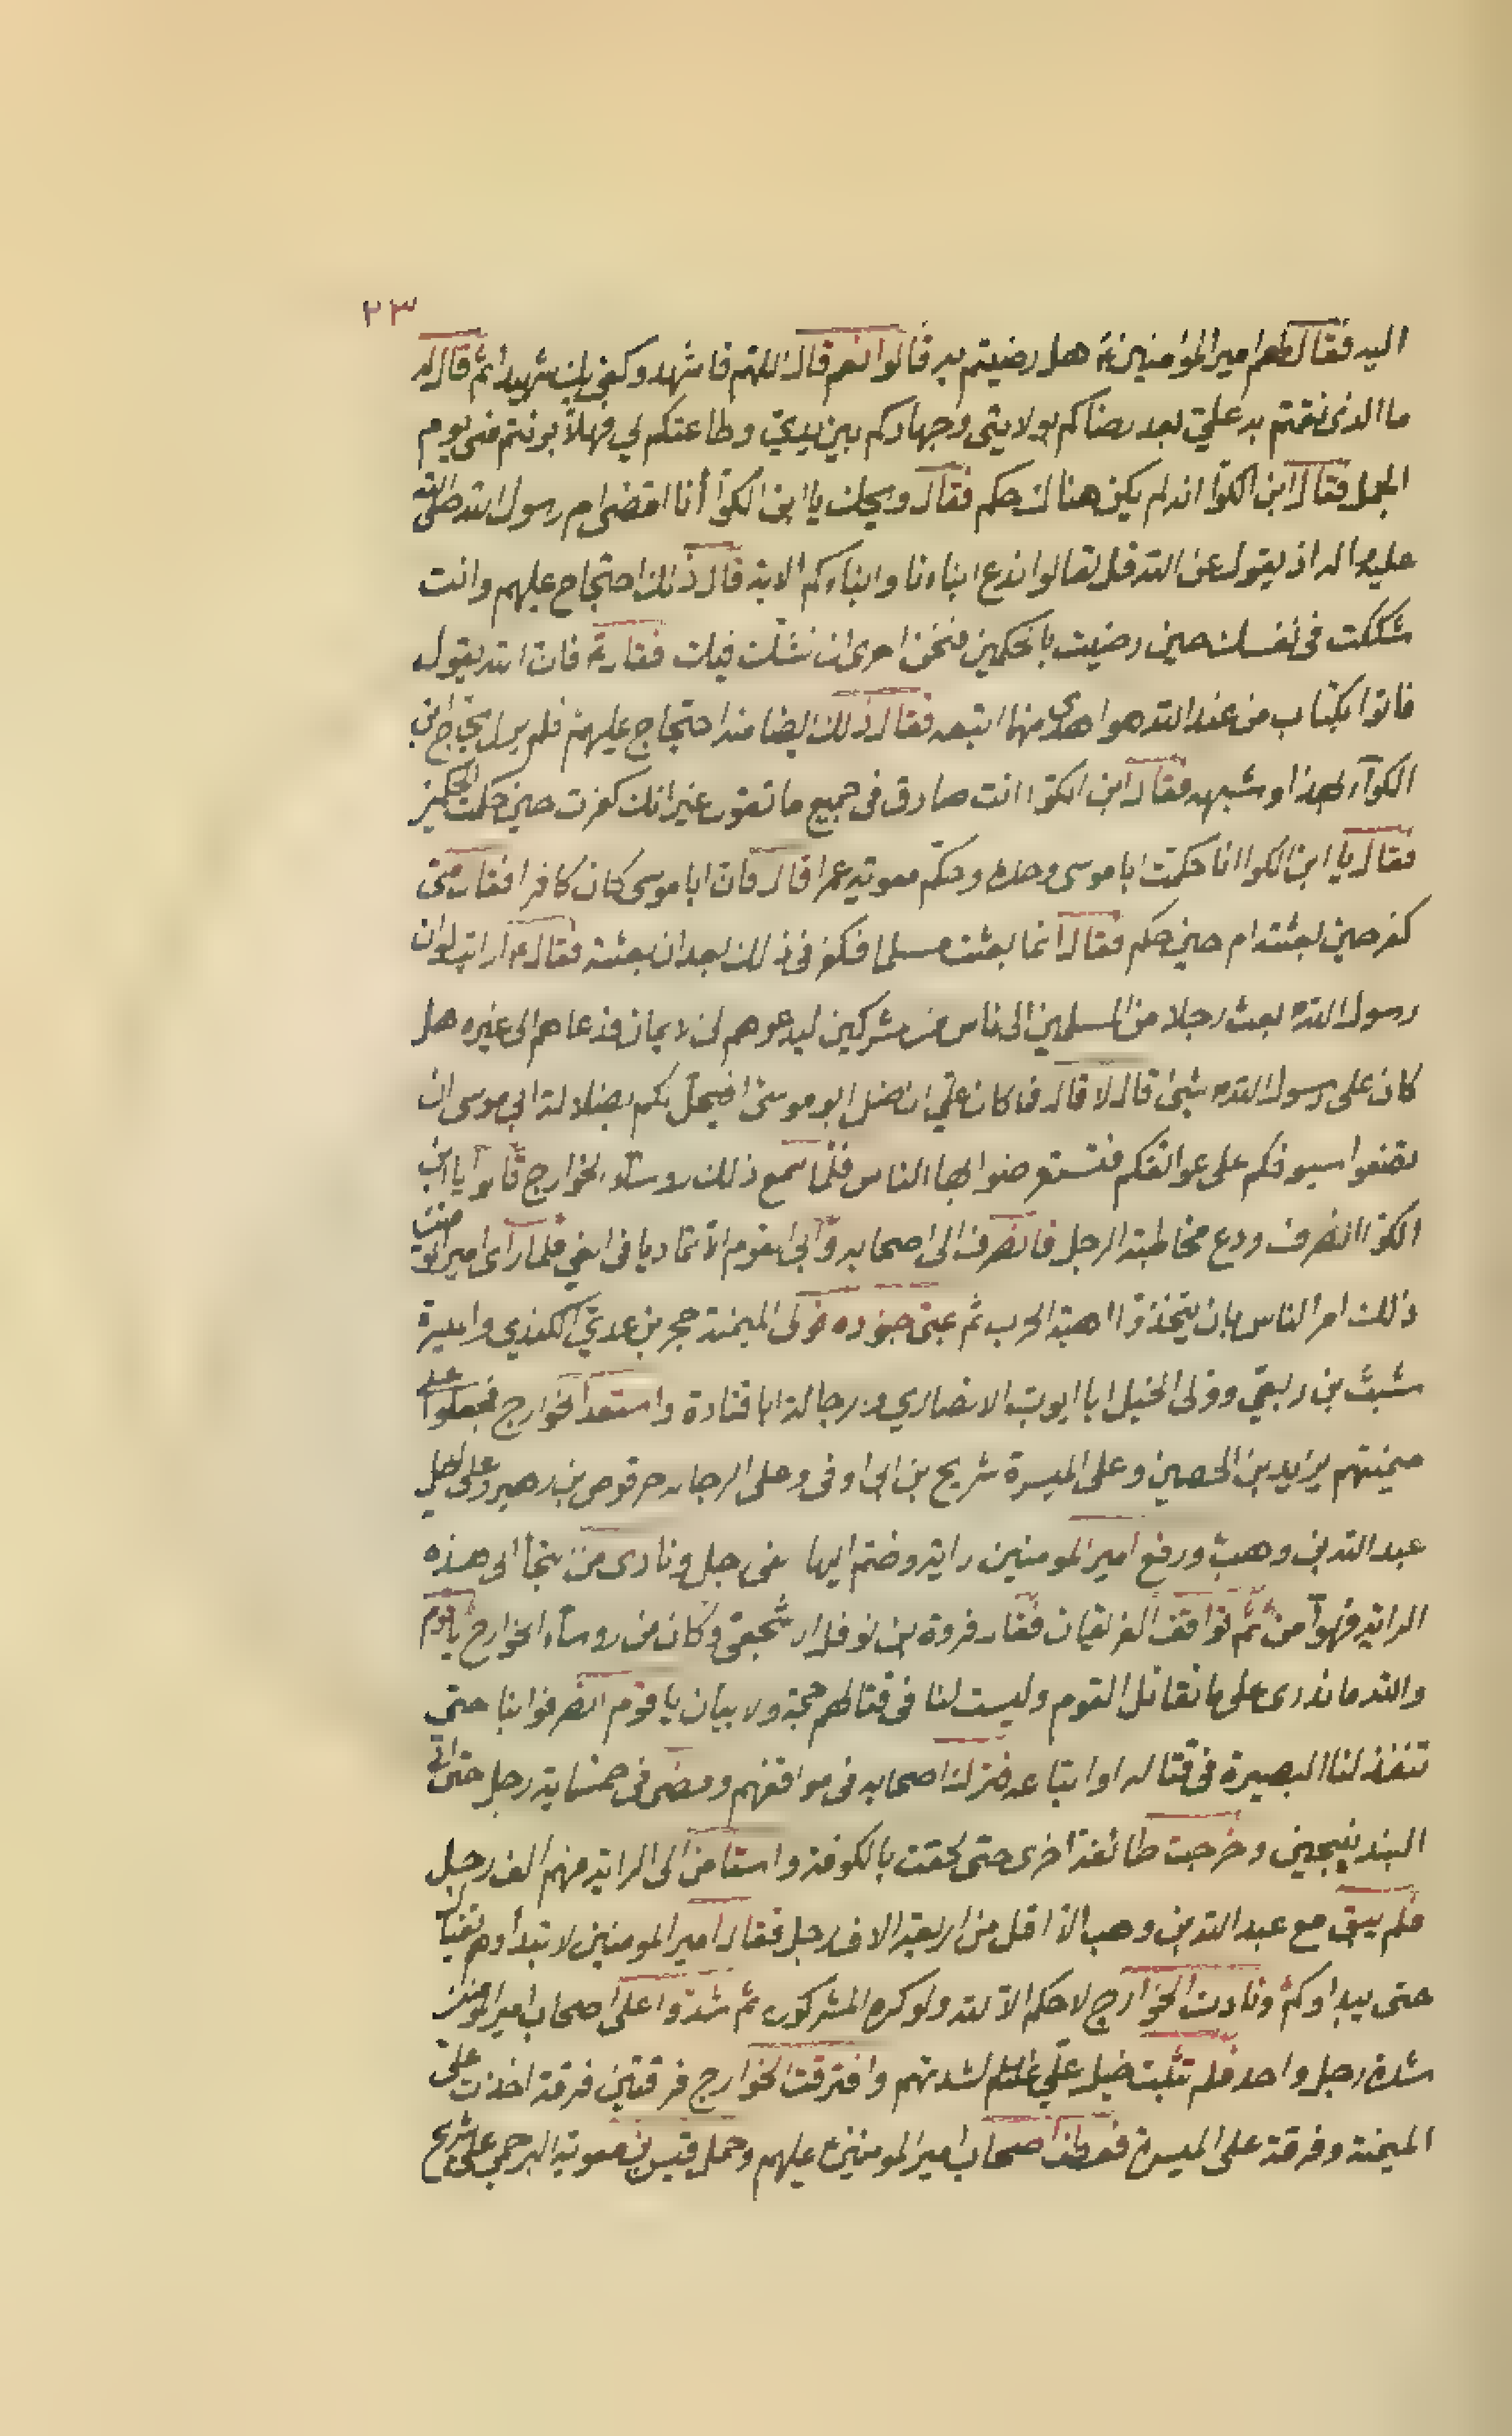 ٢٣
اليه فقال لهم امير المؤمنين ع هل رضيتم به قالوا نعم قال اللهم فاشهد وكفى بك شهيدا ثم قال له
ما الذى نقمتم به عليّ بعد رضاكم بولايتى وجهادكم بين يديّ وطاعتكم لي فهلاّ برئتم منى يوم
الجمل فقال ابن الكوا انه لم يكن هناك حكم فقال ويحك يا ابن الكوّا أنا اقضى ام رسول الله صلى الله
عليه واله اذ يقول عن الله قل تعالوا ندع ابناءنا وابناءكم الاية قال ذلك احتجاج عليهم وانت
شككت فى نفسك حين رضيت بالحكمين فنحن احرى ان نشك فيك فقال ع فان الله يقول
فاتوا بكتاب من عند الله هو اهدى منهما اتبعه فقال ذلك ايضا منه احتجاج عليهم فلم يزل يحاج ابن
الكوآء بهذا وشبهه فقال ابن الكوّا انت صادق فى جميع ما تقول غير انك كفرت حين حكمت الحكمين
فقال يا ابن الكوا انا حكمت ابا موسى وحده وحكّم معوية عمرا قال فان ابا موسى كان كافرا فقال متى
كفر حين بعثته ام حين حكم فقال انما بعثت مسلما فكفر فى ذلك بعد ان بعثته فقال ع ارايت لو ان
رسول الله بعث رجلا من المسلمين الى ناس من مشركين ليدعوهم الى الايمان فدعاهم الى غيره هل
كان على رسول الله شيئ قال لا قال فما كان عليّ ان ضل ابو موسى افيحل لكم بضلالة ابى موسى ان
تضعوا سيوفكم على عواتقكم فتستعرضوا بها الناس فلمّا سمع ذلك روسآء الخوارج قالوا يا ابن
الكوا انصرف ودع مخاطبة الرجل فانصرف الى اصحابه وأبى القوم الاّ تماديا فى الغي فلما رآى امير المؤمنين
ذلك امر الناس بان يتخذوا اهبة الحرب ثم عبّى جنوده فولى الميمنة حجر بن عديّ الكندي والميسرة
شبث بن ربعي وولى الخيل ابا ايوب الانصاري والرجالة ابا قتادة واستعد الخوارج فجعلوا على
ميمنتهم يزيد بن الحصين وعلى الميسرة شريح بن ابى اوفى وعلى الرجاله حرقوص بن زهير وعلى الخيل
عبد الله بن وهب ورفع امير المومنين راية وضم اليها الفى رجل ونادى من التجأ الى هذه
الراية فهو آمن ثم تواقف الفريقان فقال فروة بن نوفل الاشجعي وكان من روسآء الخوارج يا قوم
والله ما ندرى على ما نقاتل القوم وليست لنا فى قتالهم حجة ولا بيان يا قوم انصرفوا بنا حتى
تنفذ لنا البصيرة فى قتاله او اتباعه فترك اصحابه فى مواقفهم ومضى فى خمسماية رجل حتى اتى
البندنيجين وخرجت طائفة اخرى حتى لحقت بالكوفة واستامن الى الراية منهم الف رجل
فلم يبق مع عبد الله بن وهب الا اقل من اربعة الاف رجل فقال امير المومنين لا تبدأوهم بقتال
حتى يبداوكم ونادت الخوارج لا حكم الا لله ولو كره المشركون ثم شدوا على اصحاب امير المومنين
شدة رجل واحد فلم تثبت خيل علي لشدتهم وافترقت الخوارج فرقتين فرقة اخذت على
الميمنة وفرقة على الميسرة فعطف اصحاب امير المومنين ع عليهم وحمل قيس بن معوية البرجمي على شريح